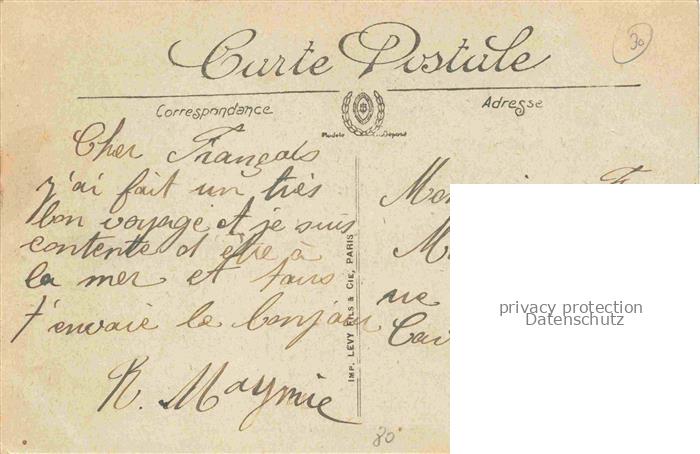 Carte Postale
30
Correspondance
Adresse
Modèle Déposé
Cher Français
j'ai fait un très
bon voyage et je suis
contente d'être à
la mer et
t'envoie le bonjour
R. Maymie
IMP. LEVY FILS & CIE, PARIS
privacy protection
Datenschutz
80